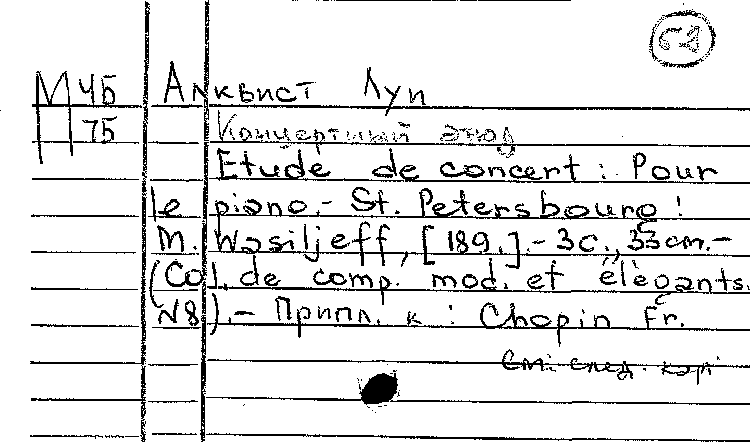 68
М 45 Алквист Луи
П 75 Концертный этюд
Etude de concert : Pour
le piano. - St. Petersbourg :
M. Wasiljeff, [189.]. - 3 с., 33 cm. -
(Col. de comp. mod. et élègants.
N8). - Припл. к : Chopin Fr.
См. след. кар